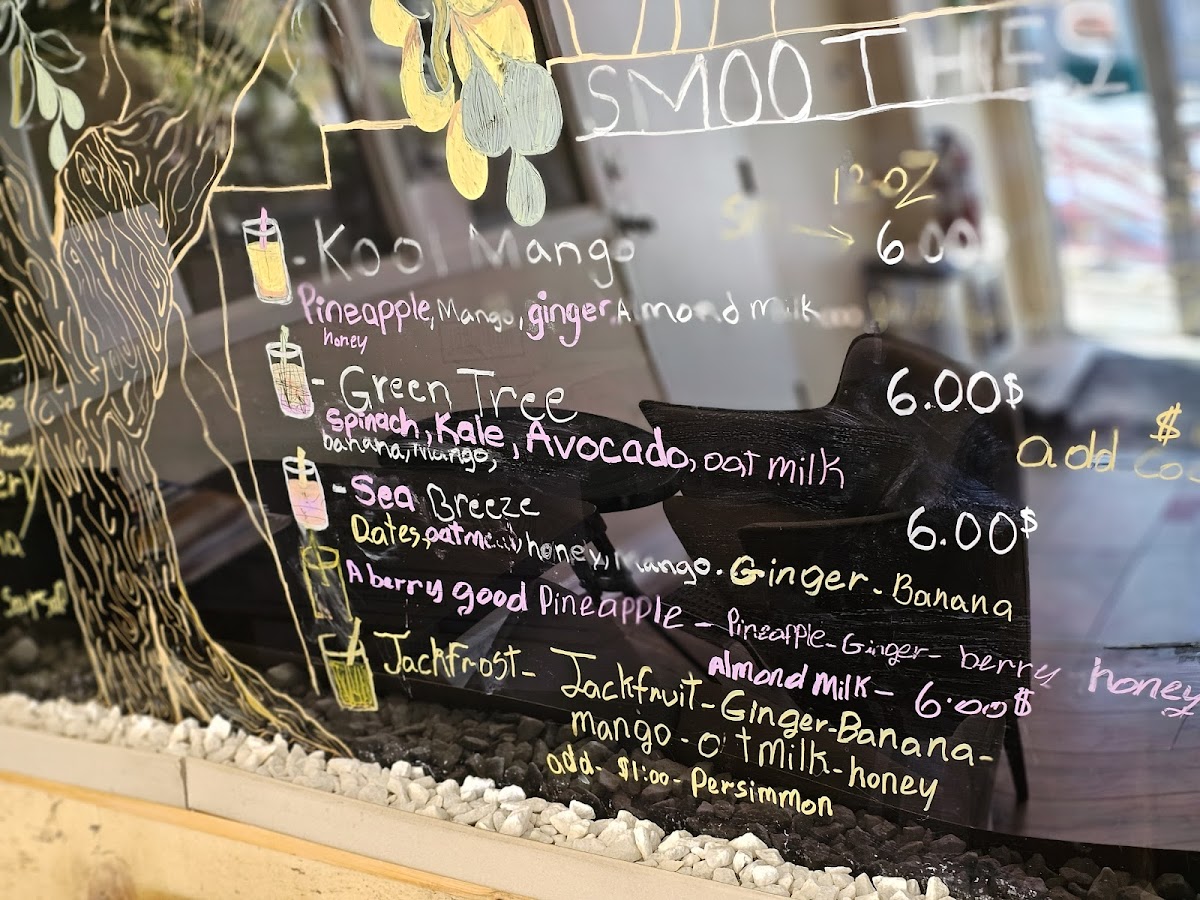 SMOOTHIES
12-OZ
- Kool Mango 6.00
Pineapple, Mango, ginger, Almond milk
honey
- Green Tree 6.00$
Spinach, Kale, Avocado, oat milk
banana, Mango,
add $
- Sea Breeze 6.00$
Dates, oatmilk, honey, Mango. Ginger - Banana
A berry good Pineapple - Pineapple - Ginger - berry honey
Almond Milk - 6.00$
Jackfrost - Jackfruit - Ginger - Banana -
mango - oatmilk - honey
add - $1.00 - Persimmon